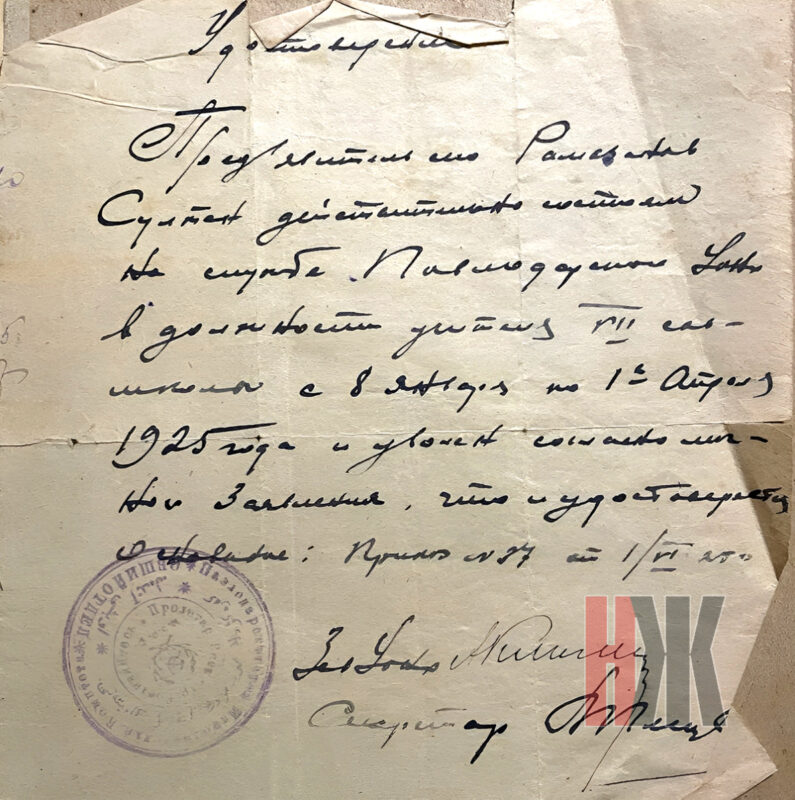 Удостоверение
Предъявитель сего Рамазанов
Султан действительно состоял
на службе Павлодарском Уоно
в должности учителя VII аул-
школы с 8 января по 1е Апреля
1925 года и уволен согласно лич-
ного Заявления, что и удостоверяется
Основание: Приказ № 37 от 1/VI
Зав Уоно
Секретар
ОБЩИЙ ОТДЕЛ
НЖ